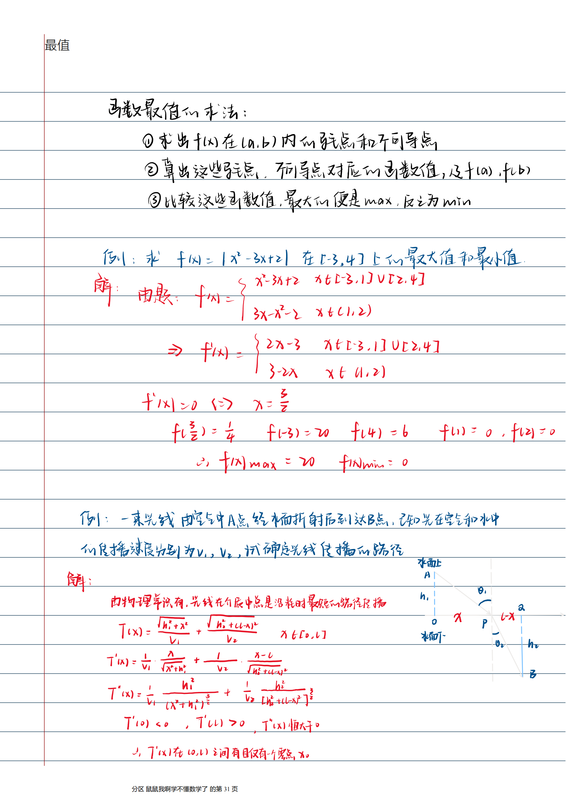 最值
函数最值的求法：
①求出f(x)在(a,b)内的驻点和不可导点
②算出这些驻点、不可导点对应的函数值，及f(a),f(b)
③比较这些函数值，最大的便是max，反之为min
例1：求 f(x)=|x²-3x+2| 在[-3,4]上的最大值和最小值
解：由题：f(x)={ x²-3x+2 x∈[-3,1]∪[2,4]
3x-x²-2 x∈(1,2)
⇒ f'(x)={ 2x-3 x∈[-3,1]∪[2,4]
3-2x x∈(1,2)
f'(x)=0 <=> x=3/2
f(3/2)=1/4 f(-3)=20 f(4)=6 f(1)=0,f(2)=0
∴ f(x)max=20 f(x)min=0
例：一束光线由空气中A点经水面折射后到达B点，已知光在空气和水中
的传播速度分别为v₁,v₂，试确定光线传播的路径
水面上
A
h₁
θ₁
O
x
P
l-x
Q
水面下
θ₂
h₂
B
解：
由物理常识有，光线在介质中总是沿耗时最短的路径传播
T(x)=√(h₁²+x²)/v₁+√(h₂²+(l-x)²)/v₂ x∈[0,l]
T'(x)=1/v₁·x/√(x²+h₁²)+1/v₂·(x-l)/√(h₂²+(l-x)²)
T''(x)=1/v₁·h₁²/(x²+h₁²)^(3/2)+1/v₂·h₂²/[h₂²+(l-x)²]^(3/2)
T'(0)<0,T'(l)>0,T''(x)恒大于0
∴T'(x)在(0,l)之间有且仅有一个零点x₀
分区 鼠鼠我啊学不懂数学了 的第 31 页